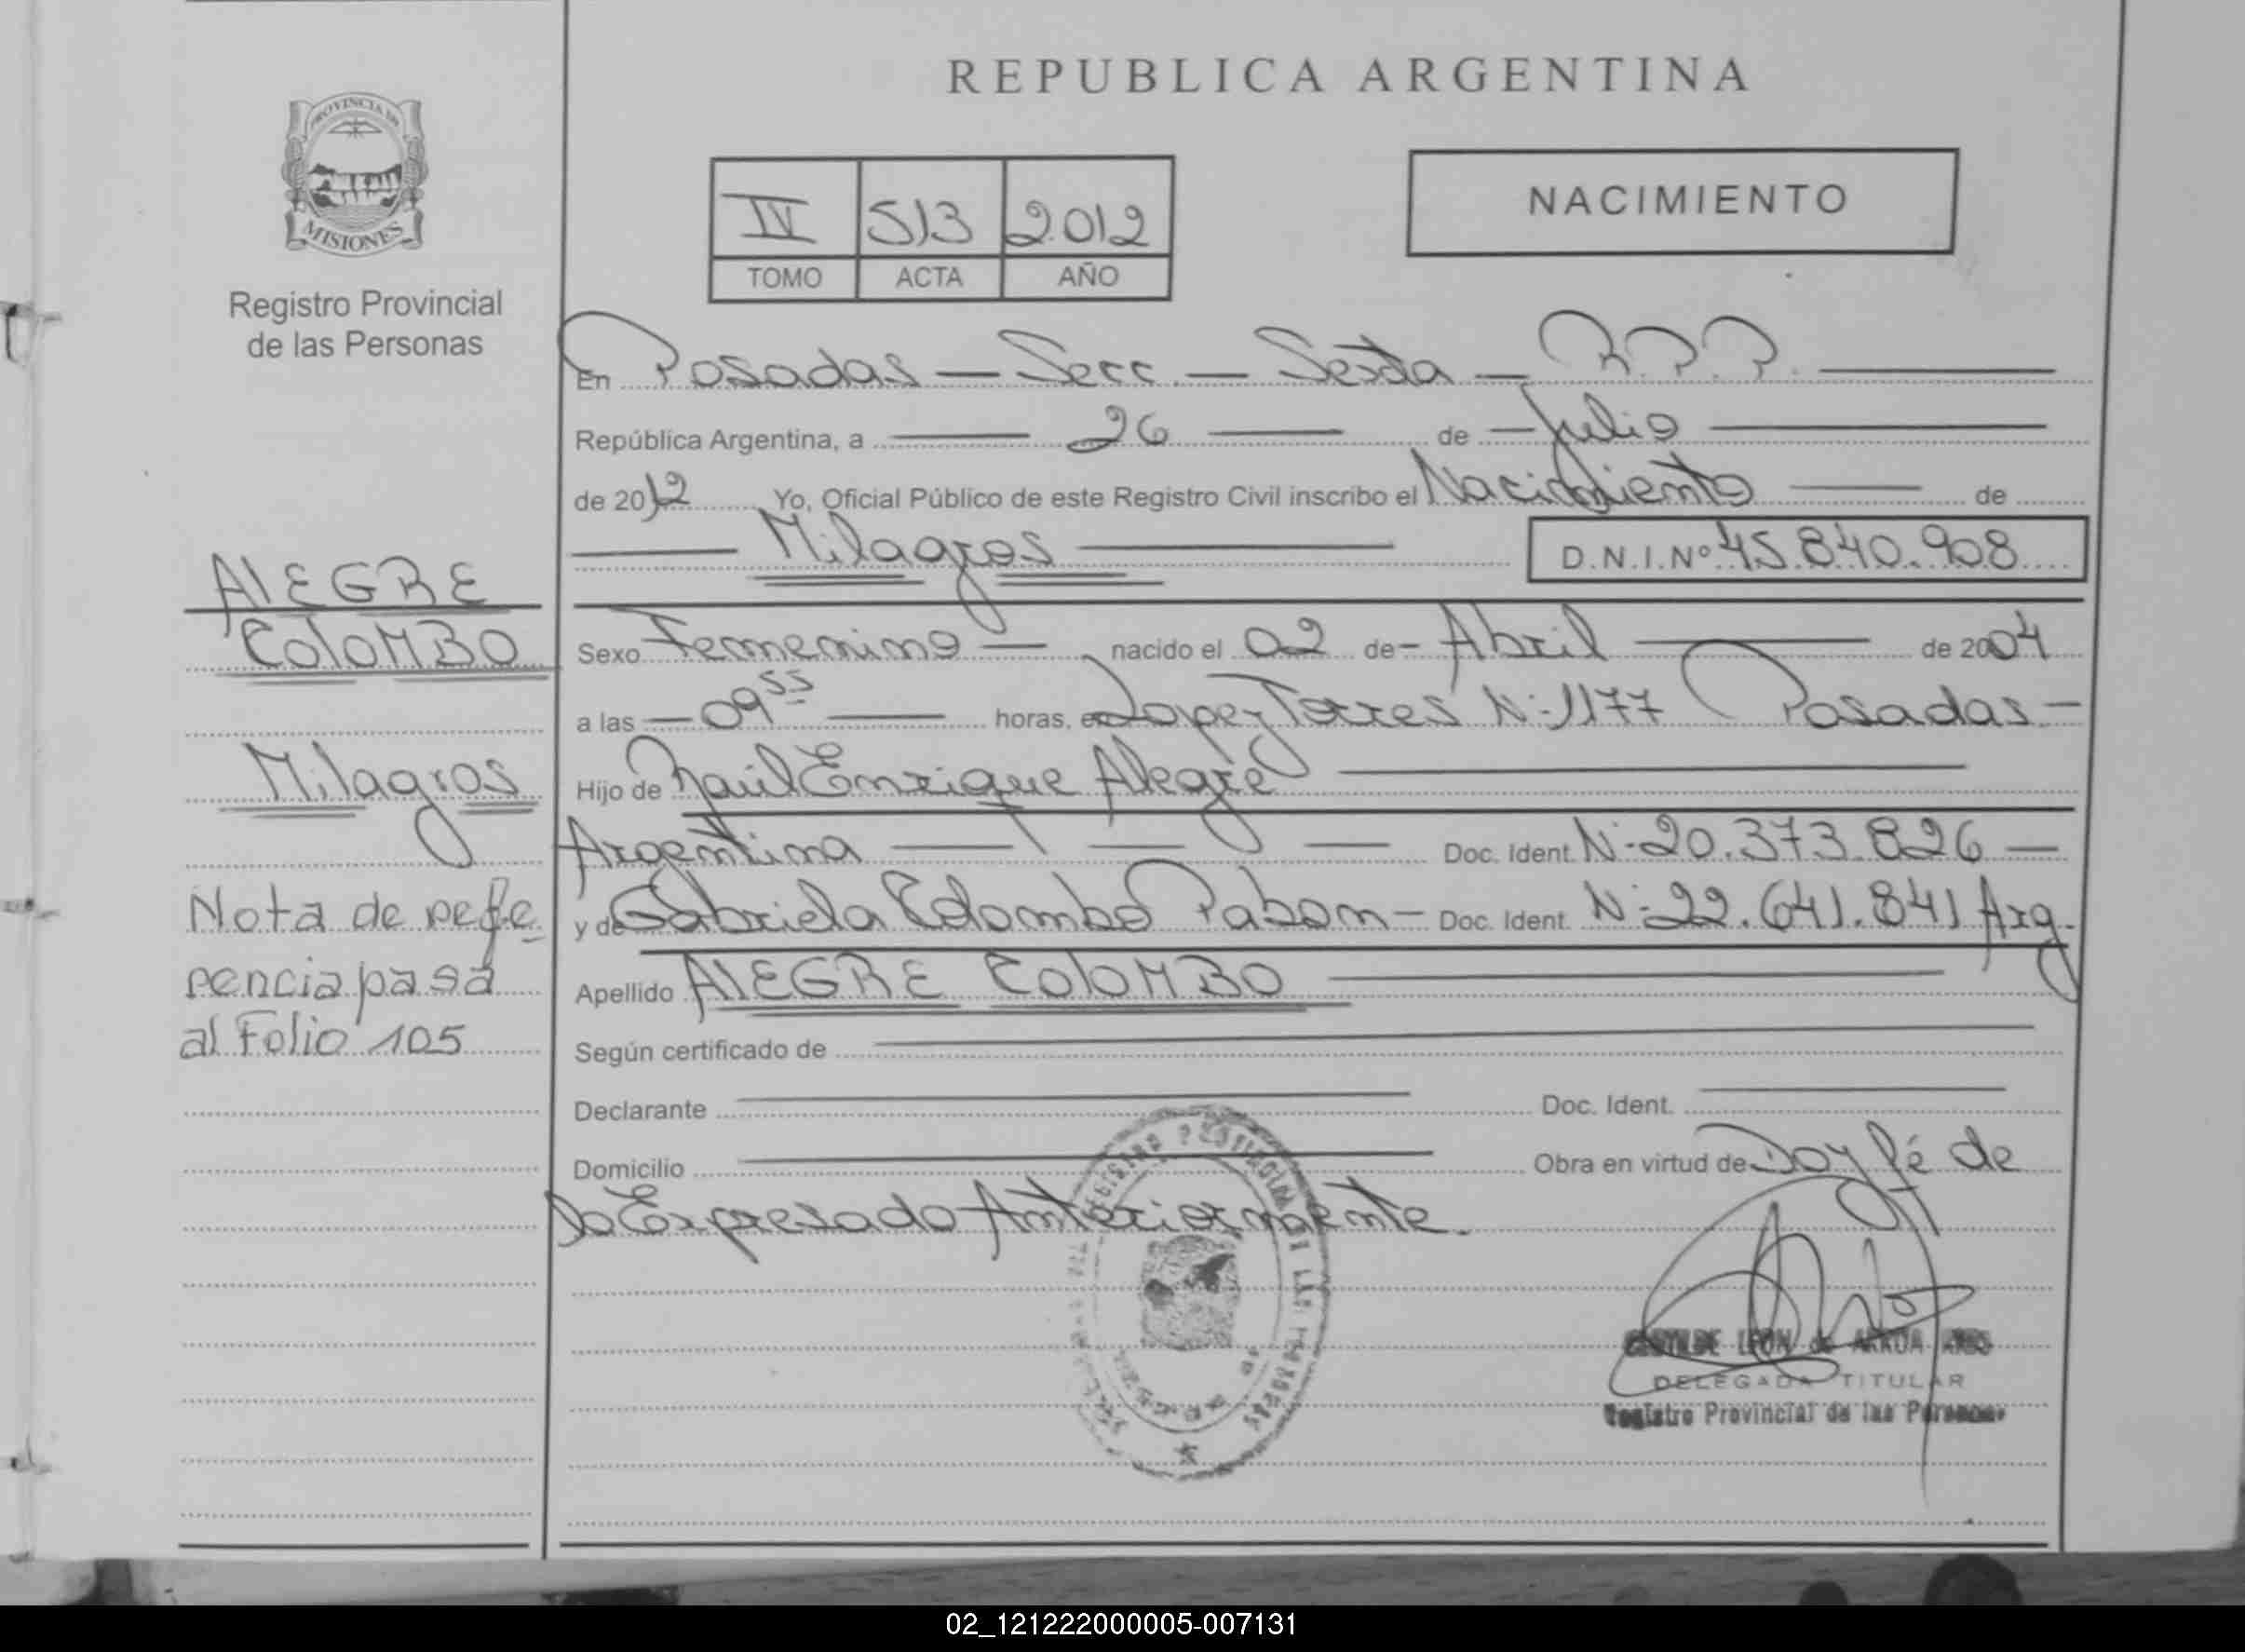 REPUBLICA ARGENTINA
PROVINCIA DE
MISIONES
Registro Provincial
de las Personas
IV 513 2012
TOMO ACTA AÑO
NACIMIENTO
En Posadas — Secc. — Sexta — R.P.P.
República Argentina, a — 26 — de — Julio
de 2012 Yo, Oficial Público de este Registro Civil inscribo el Nacimiento — de
— Milagros — D.N.I.Nº 45.840.908
Sexo Femenino — nacido el 02 de — Abril — de 2004
a las — 09 55 — horas, en Lopez Torres N: 1177 Posadas —
Hijo de Raúl Enrique Alegre
Argentina — Doc. Ident. N: 20.373.826 —
y de Gabriela Colombo Pabon — Doc. Ident. N: 22.641.841 Arg.
Apellido AlEGRE COlOMBO
Según certificado de
Declarante Doc. Ident.
Domicilio Obra en virtud de Doy fé de
lo Expresado Anteriormente.
AlEGRE
COlOMBO
Milagros
Nota de refe
rencia pasa
al Folio 105
LEON de ARRUA
DELEGADA TITULAR
Registro Provincial de las Personas
02_121222000005-007131